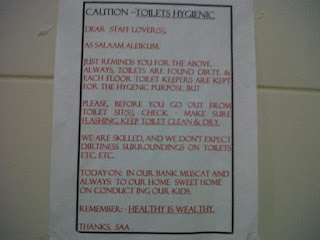 CAUTION –TOILETS HYGIENIC
DEAR STAFF LOVER(S),
AS SALAAM ALEIKUM.
JUST REMINDS YOU FOR THE ABOVE,
ALWAYS, TOILETS ARE FOUND DIRTY. &
EACH FLOOR TOILET KEEPERS ARE KEPT
FOR THE HYGENIC PURPOSE, BUT
PLEASE, BEFORE YOU GO OUT FROM
TOILET SIT(S), CHECK MAKE SURE
FLASHING, KEEP TOILET CLEAN & DRY.
WE ARE SKILLED, AND WE DON'T EXPECT
DIRTINESS SURROUNDINGS ON TOILETS
ETC. ETC.
TODAY-ON: IN OUR BANK MUSCAT AND
ALWAYS: TO OUR HOME SWEET HOME
ON CONDUCTING OUR KIDS.
REMEMBER: HEALTHY IS WEALTHY.
THANKS, SAA